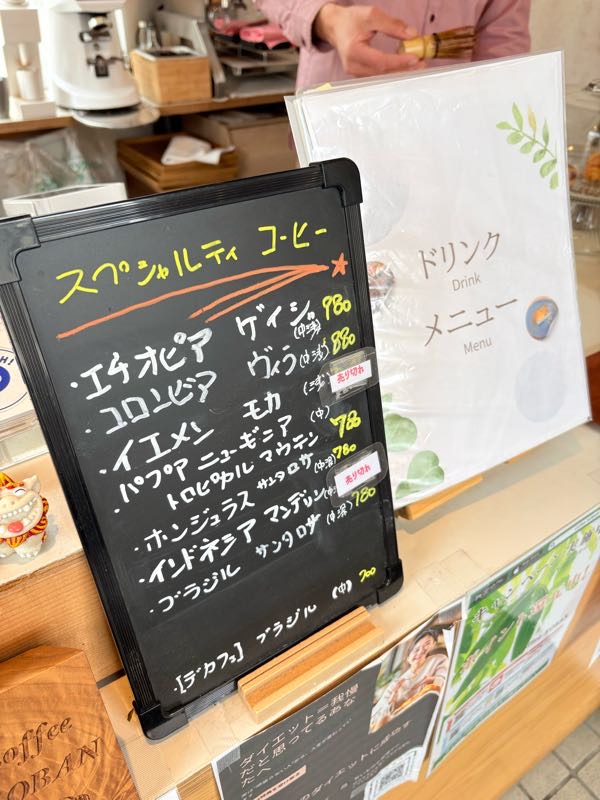 スペシャルティ コーヒー
・エチオピア ゲイシャ (中浅) 980
・コロンビア ヴィラ (中浅) 880
・イエメン モカ (中浅) 売り切れ
・パプア ニューギニア (中) 780
トロピカル マウンテン
・ホンジュラス サンタロサ (中深) 780
・インドネシア マンデリン 売り切れ
・ブラジル サンタロサ (中深) 780
・[デカフェ] ブラジル (中) 700
ドリンク
Drink
メニュー
Menu
Coffee
OBAN
ダイエット=我慢
だと思ってるあな
たへ
のダイエットに成功す